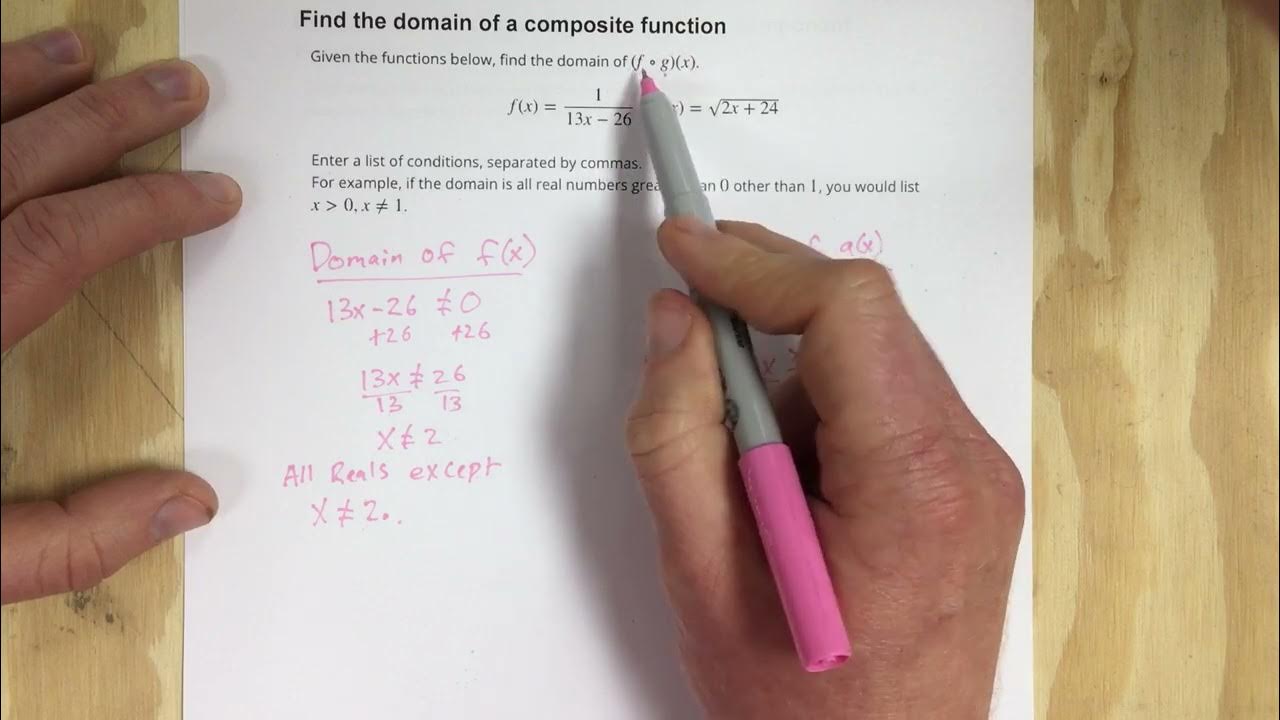 Find the domain of a composite function
Given the functions below, find the domain of (f ∘ g)(x).
f(x) = 1/(13x − 26) x) = √(2x + 24)
Enter a list of conditions, separated by commas.
For example, if the domain is all real numbers grea an 0 other than 1, you would list
x > 0, x ≠ 1.
Domain of f(x) g(x)
13x - 26 ≠ 0
+26 +26
13x ≠ 26
13 13
x
x ≠ 2
All Reals except
x ≠ 2.